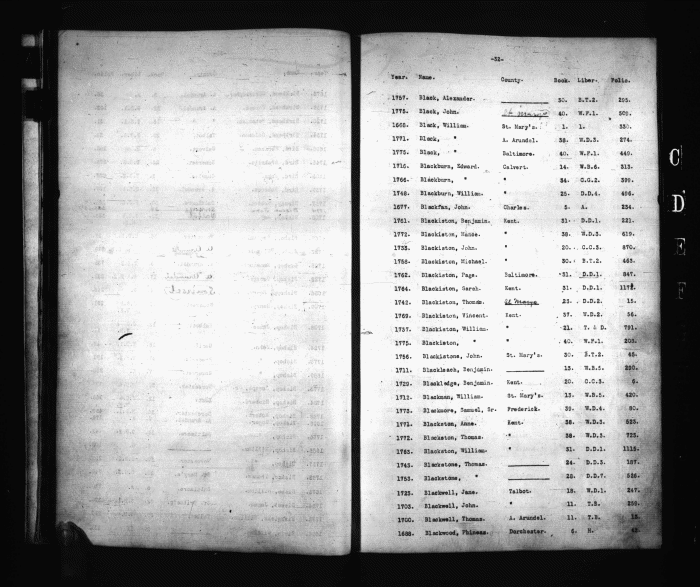 -32-
Year. Name. County. Book. Liber. Folio.
1757. Black, Alexander. 30. B.T.2. 295.
1775. Black, John. St Marys 40. W.F.1. 509.
1668. Black, William. St. Mary's. 1. 1. 330.
1771. Black, " A. Arundel. 38. W.D.3. 274.
1775. Black, " Baltimore. 40. W.F.1. 449.
1716. Blackburn, Edward. Calvert. 14. W.B.6. 313.
1766. Blackburn, " " 34. C.G.2. 399.
1748. Blackburn, William. " 25. D.D.4. 496.
1677. Blackfan, John. Charles. 5. A. 234.
1761. Blackiston, Benjamin. Kent. 31. D.D.1. 221.
1772. Blackiston, " 38. W.D.3. 619.
1733. Blackiston, John. " 20. C.C.3. 870.
1758. Blackiston, Michael. " 30. B.T.2. 463.
1762. Blackiston, Page. Baltimore. 31. D.D.1. 847.
1764. Blackiston, Sarah. Kent. 31. D.D.1.
1742. Blackiston, Thomas. St Marys 23. D.D.2. 15.
1769. Blackiston, Vincent. Kent. 37. W.D.2. 56.
1737. Blackiston, William. " 21. T. & D. 791.
1775. Blackiston, " " 40. W.F.1. 203.
1756. Blackistone, John. St. Mary's. 30. B.T.2. 45.
1711. Blackleach, Benjamin. 13. W.B.5. 290.
1729. Blackledge, Benjamin. Kent. 20. C.C.3. 6.
1712. Blackman, William. St. Mary's. 13. W.B.5. 420.
1773. Blackmore, Samuel, Sr. Frederick. 39. W.D.4. 80.
1771. Blackston, Anne. Kent. 38. W.D.3. 525.
1772. Blackston, Thomas. " 38. W.D.3. 723.
1763. Blackston, William. " 31. D.D.1. 1115.
1745. Blackstone, Thomas. 24. D.D.3. 187.
1753. Blackstone, " 28. D.D.7. 526.
1723. Blackwell, Jane. Talbot. 18. W.D.1. 247.
1703. Blackwell, John. " 11. T.B. 259.
1700. Blackwell, Thomas. A. Arundel. 11. T.B. 12.
1688. Blackwood, Phineas. Dorchester. 6. H. 42.
C
D
E
F